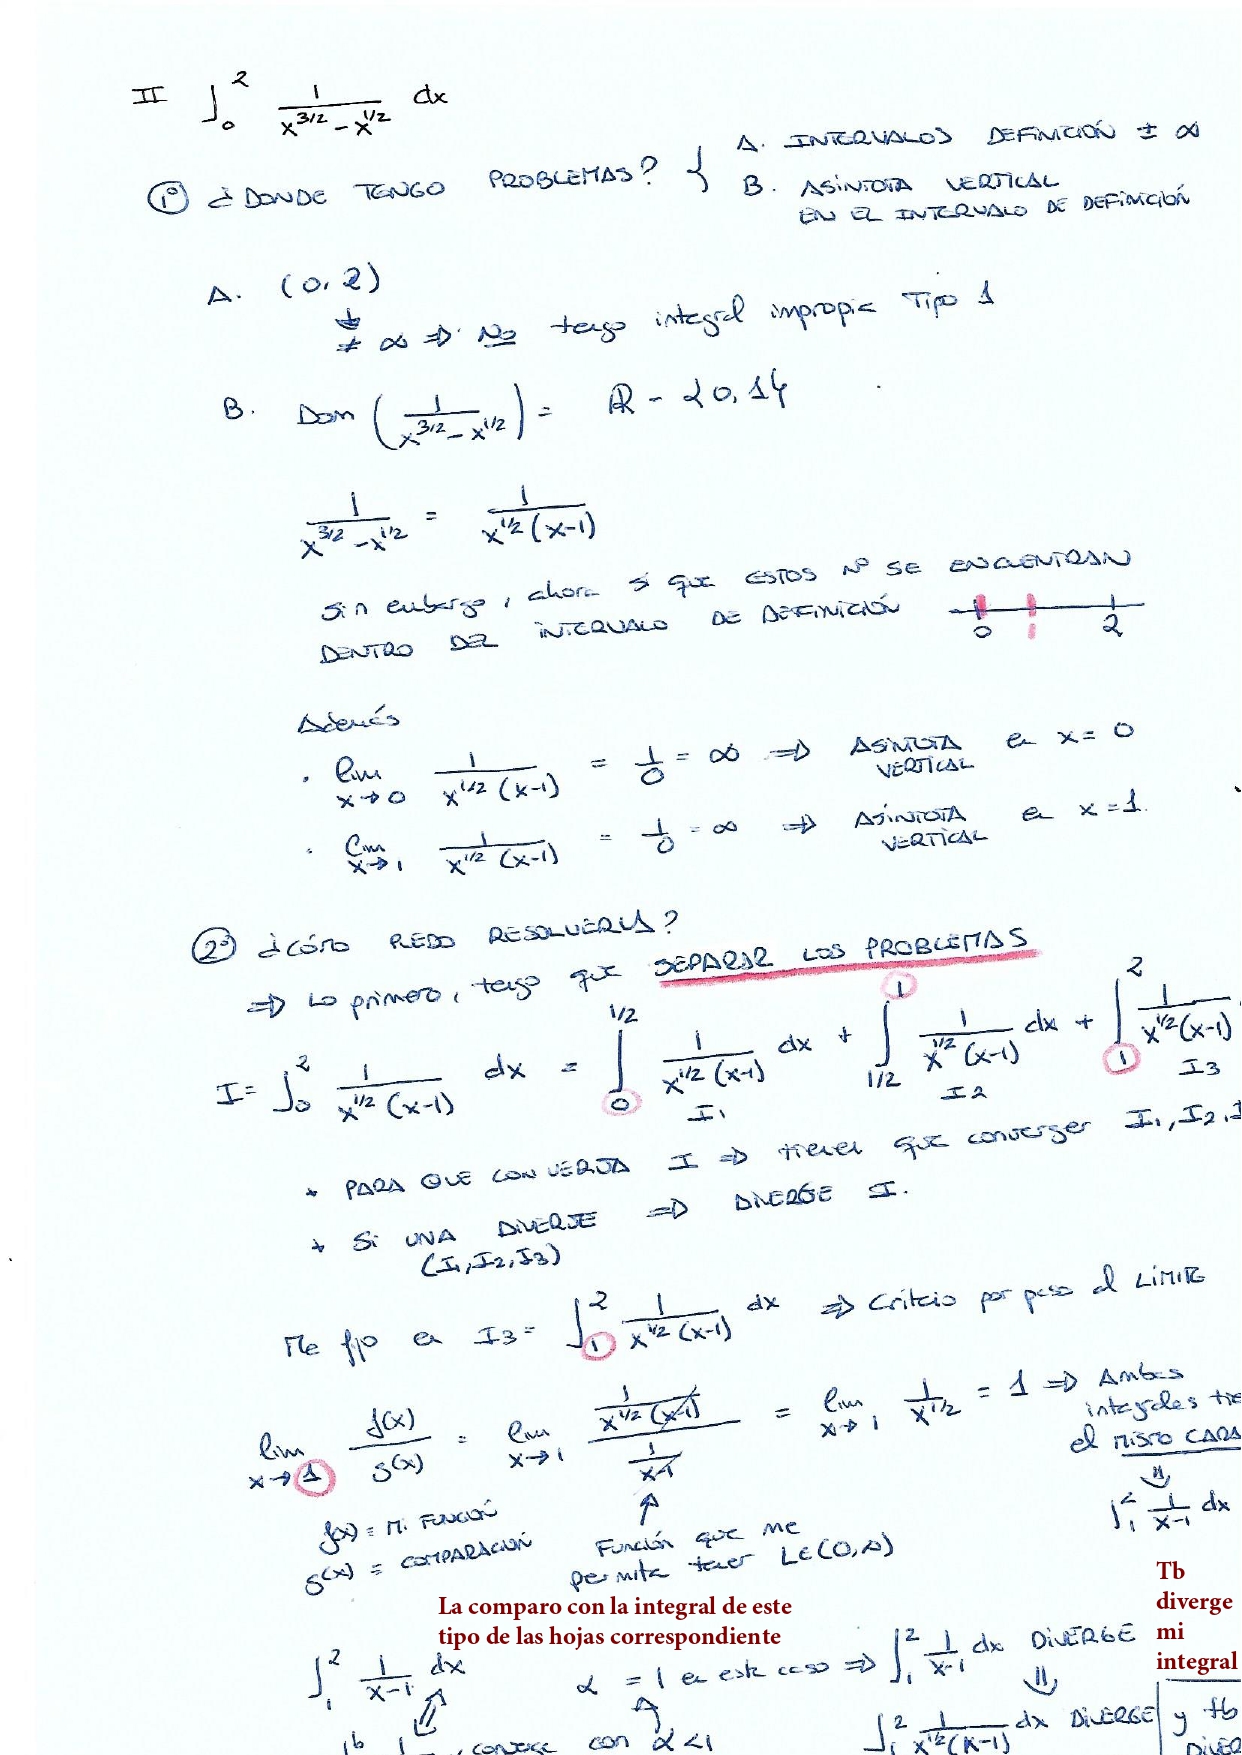 II ∫₀² 1/(x^{3/2} - x^{1/2}) dx
① ¿DONDE TENGO PROBLEMAS? { A. INTERVALOS DEFINICIÓN ± ∞
B. ASÍNTOTA VERTICAL
EN EL INTERVALO DE DEFINICIÓN
A. (0, 2)
≠ ∞ ⇒ No tengo integral impropia Tipo 1
B. Dom (1/(x^{3/2} - x^{1/2})) = ℝ - {0, 1}
1/(x^{3/2} - x^{1/2}) = 1/(x^{1/2}(x-1))
Sin embargo, ahora sí que ESTOS Nº SE ENCUENTRAN
DENTRO DEL INTERVALO DE DEFINICIÓN
0 1 2
Además
· lim x→0 1/(x^{1/2}(x-1)) = 1/0 = ∞ ⇒ ASÍNTOTA VERTICAL en x = 0
· lim x→1 1/(x^{1/2}(x-1)) = 1/0 = ∞ ⇒ ASÍNTOTA VERTICAL en x = 1
② ¿CÓMO PUEDO RESOLVERLA?
⇒ Lo primero, tengo que SEPARAR LOS PROBLEMAS
I = ∫₀² 1/(x^{1/2}(x-1)) dx = ∫₀^{1/2} 1/(x^{1/2}(x-1)) dx + ∫_{1/2}^1 1/(x^{1/2}(x-1)) dx + ∫₁² 1/(x^{1/2}(x-1))
I₁ I2 I3
* PARA QUE CONVERJA I ⇒ tienen que converger I₁, I₂, I
* Si UNA DIVERJE ⇒ DIVERGE I.
(I₁, I₂, I₃)
Me fijo en I3 = ∫₁² 1/(x^{1/2}(x-1)) dx ⇒ Criterio por paso al LÍMITE
lim x→1 f(x)/g(x) = lim x→1 (1/(x^{1/2}(x-1)))/(1/(x-1)) = lim x→1 1/x^{1/2} = 1 ⇒ Ambas
integrales tie
el mismo CARA
∫₁² 1/(x-1) dx
f(x) = Mi FUNCIÓN
g(x) = COMPARACIÓN
Función que me
permita tener L∈(0,∞)
La comparo con la integral de este
tipo de las hojas correspondiente
Tb
diverge
mi
integral
∫₁² 1/(x-1) dx α = 1 en este caso ⇒ ∫₁² 1/(x-1) dx DIVERGE
∫₁² 1/(x^{1/2}(x-1)) dx DIVERGE y tb
con α<1